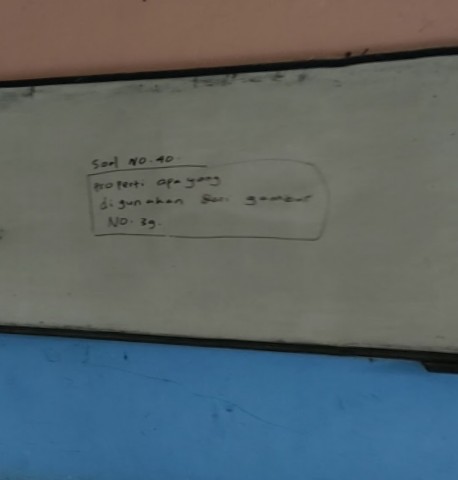 Soal NO. 40.
Properti apa yang
digunakan Dari gambar
NO. 39.